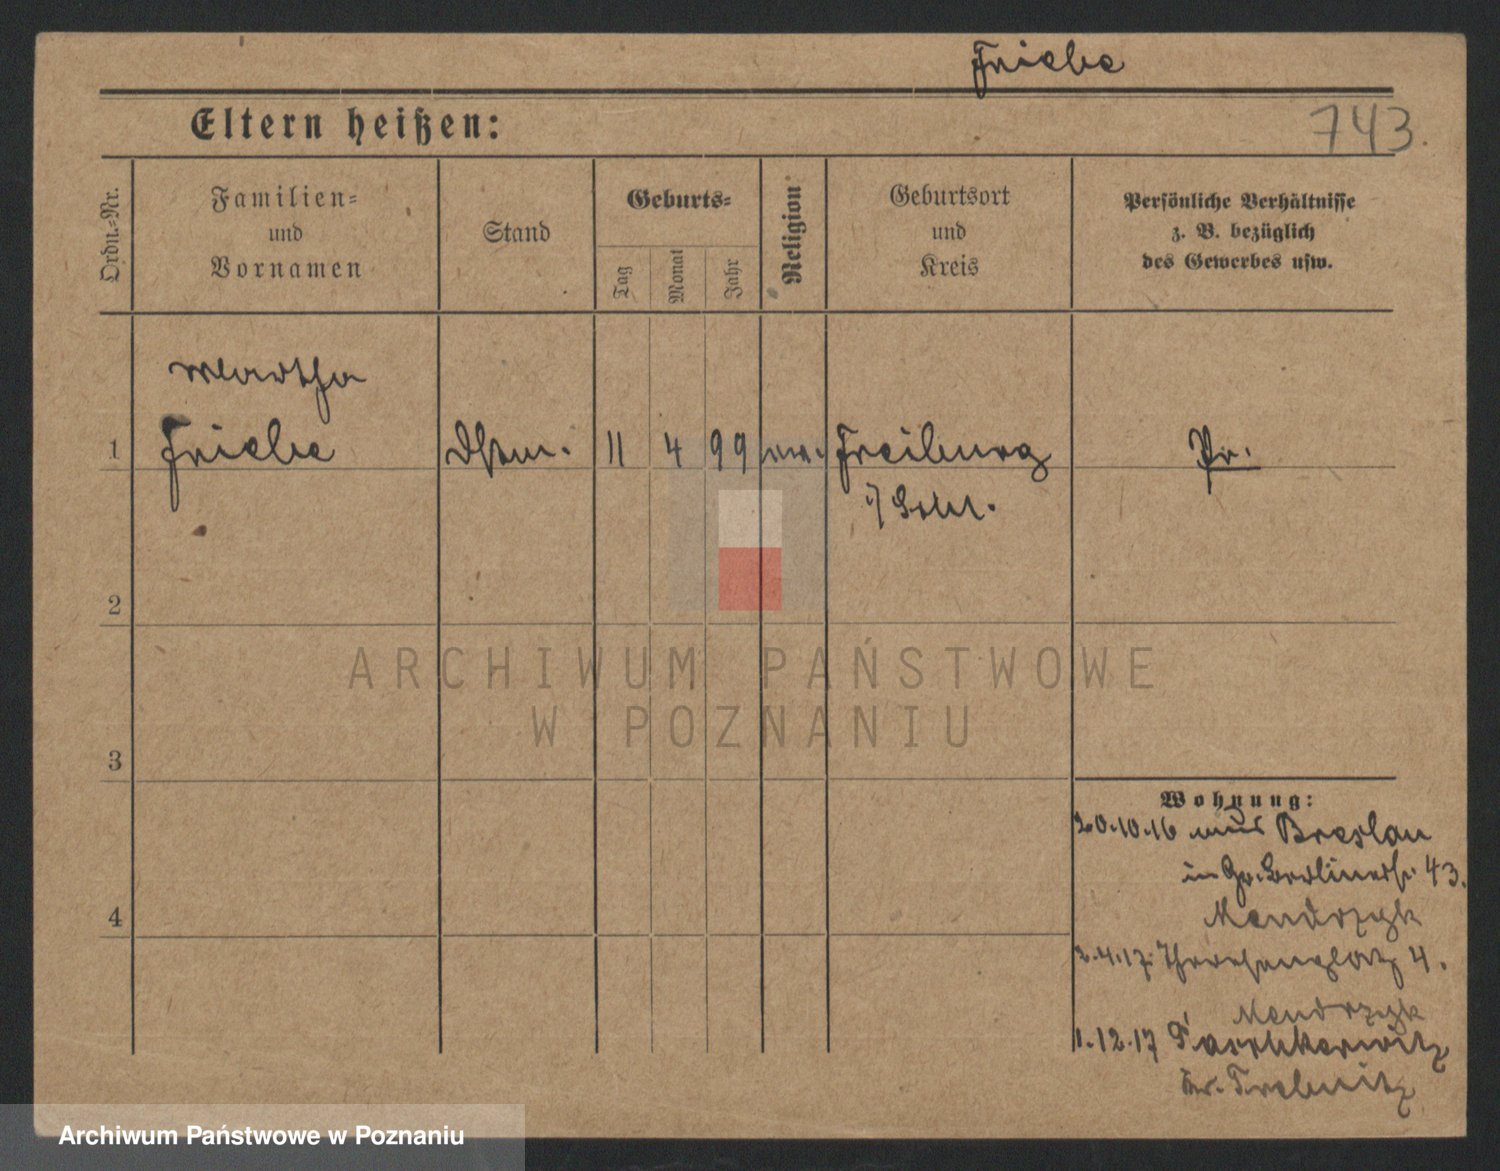 Friebe
Eltern heißen:
743.
Ordn.-Nr.
Familien-
und
Vornamen
Stand
Geburts-
Tag
Monat
Jahr
Religion
Geburtsort
und
Kreis
Persönliche Verhältnisse
z. B. bezüglich
des Gewerbes usw.
Martha
1 Friebe 11 4 99 ev. Freiburg Pr.
i/Schl.
2
3
4
Wohnung:
20.10.16 aus Breslau
in Gr. Berlinerstr. 43.
Mendrzyk
2.4.17. Theresenplatz 4.
Mendrzyk
1.12.17 Paschkerwitz
Kr. Trebnitz
ARCHIWUM PAŃSTWOWE
W POZNANIU
Archiwum Państwowe w Poznaniu